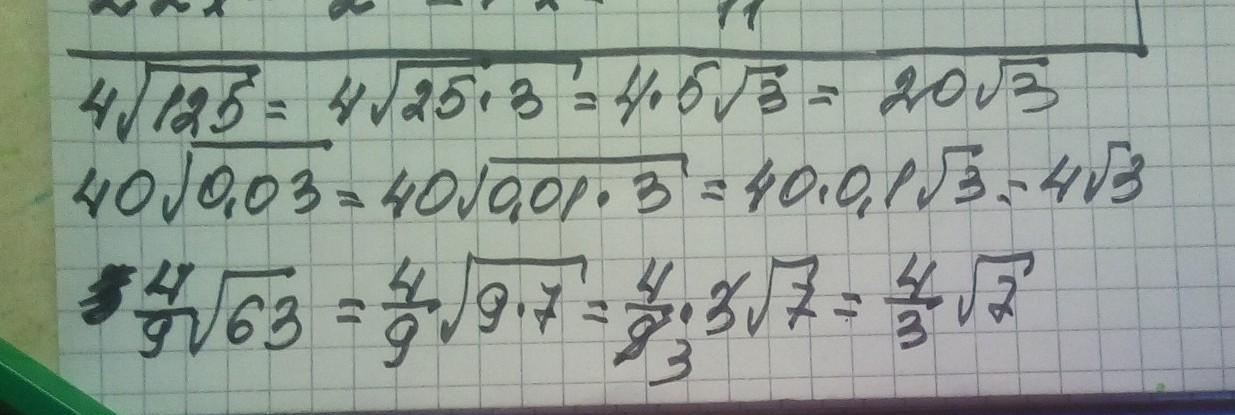 4√125 = 4√25·3 = 4·5√3 = 20√3
40√0,03 = 40√0,01·3 = 40·0,1√3 = 4√3
4/9√63 = 4/9√9·7 = 4/9·3√7 = 4/3√7
3